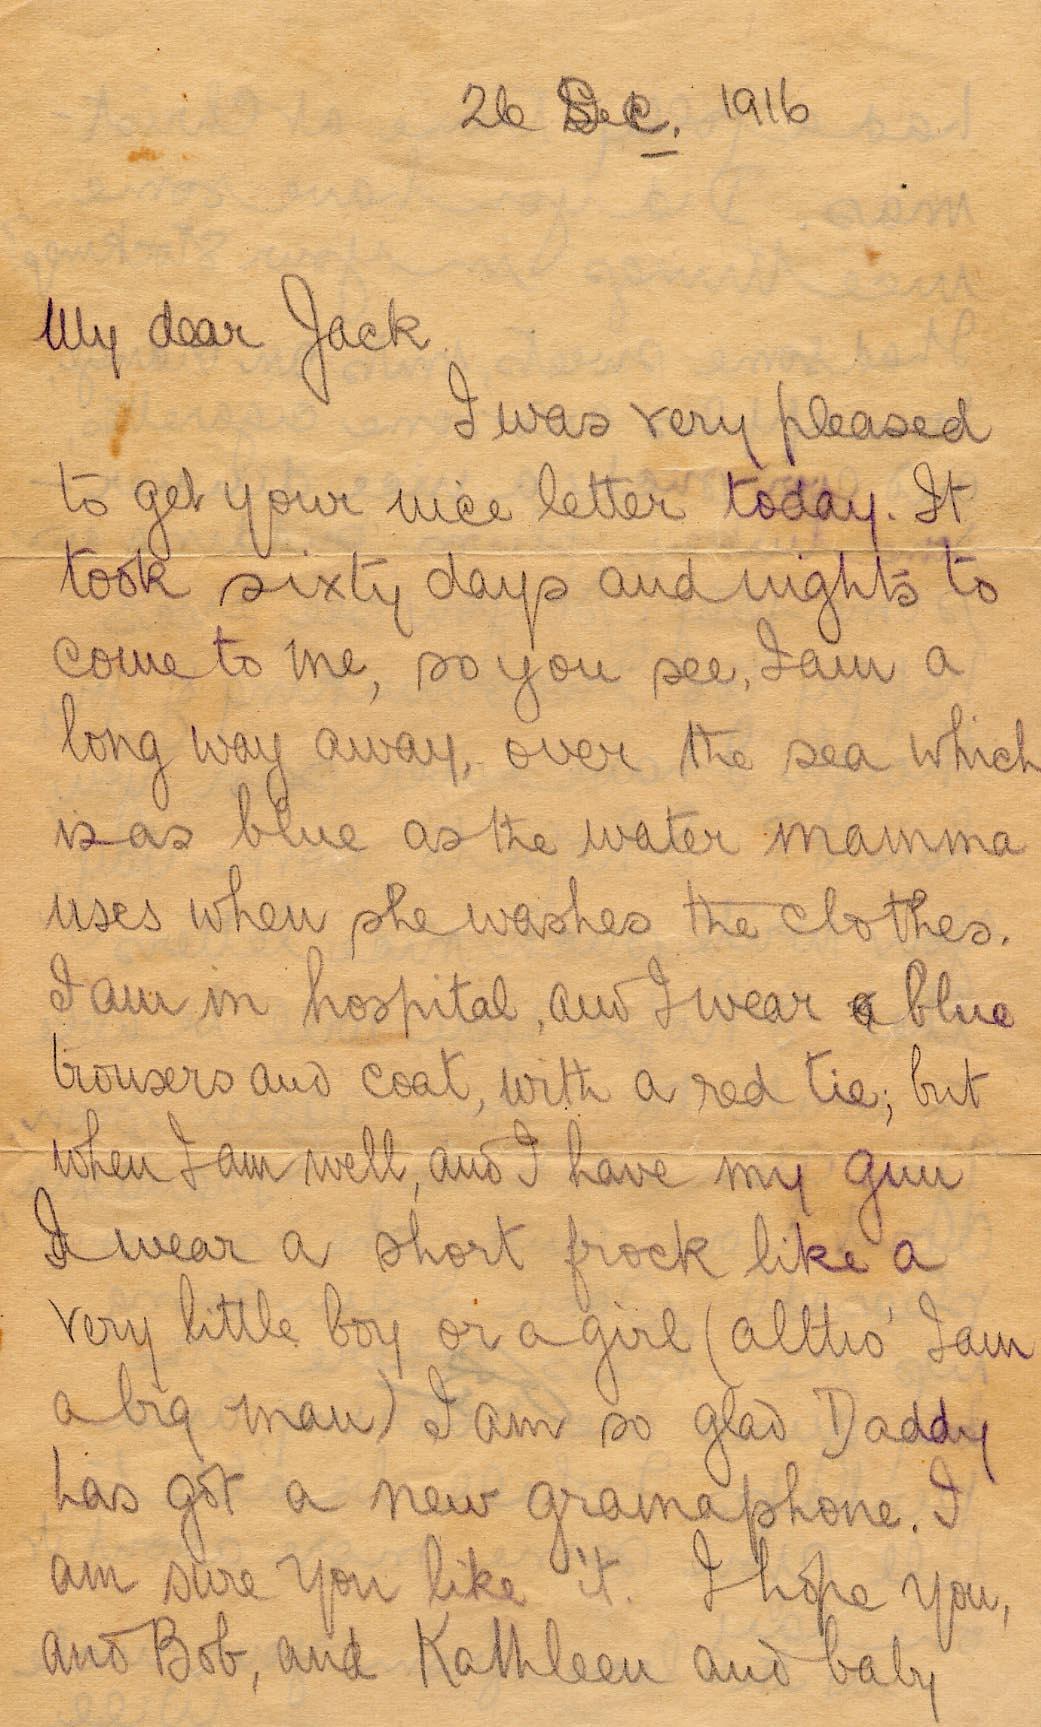 26 Dec. 1916
My dear Jack
I was very pleased
to get your nice letter today. It
took sixty days and nights to
come to me, so you see, I am a
long way away, over the sea which
is as blue as the water mamma
uses when she washes the clothes.
I am in hospital, and I wear blue
trousers and coat, with a red tie; but
when I am well, and I have my gun
I wear a short frock like a
very little boy or a girl (altho' I am
a big man) I am so glad Daddy
has got a new gramaphone. I
am sure you like it. I hope you,
and Bob, and Kathleen and baby